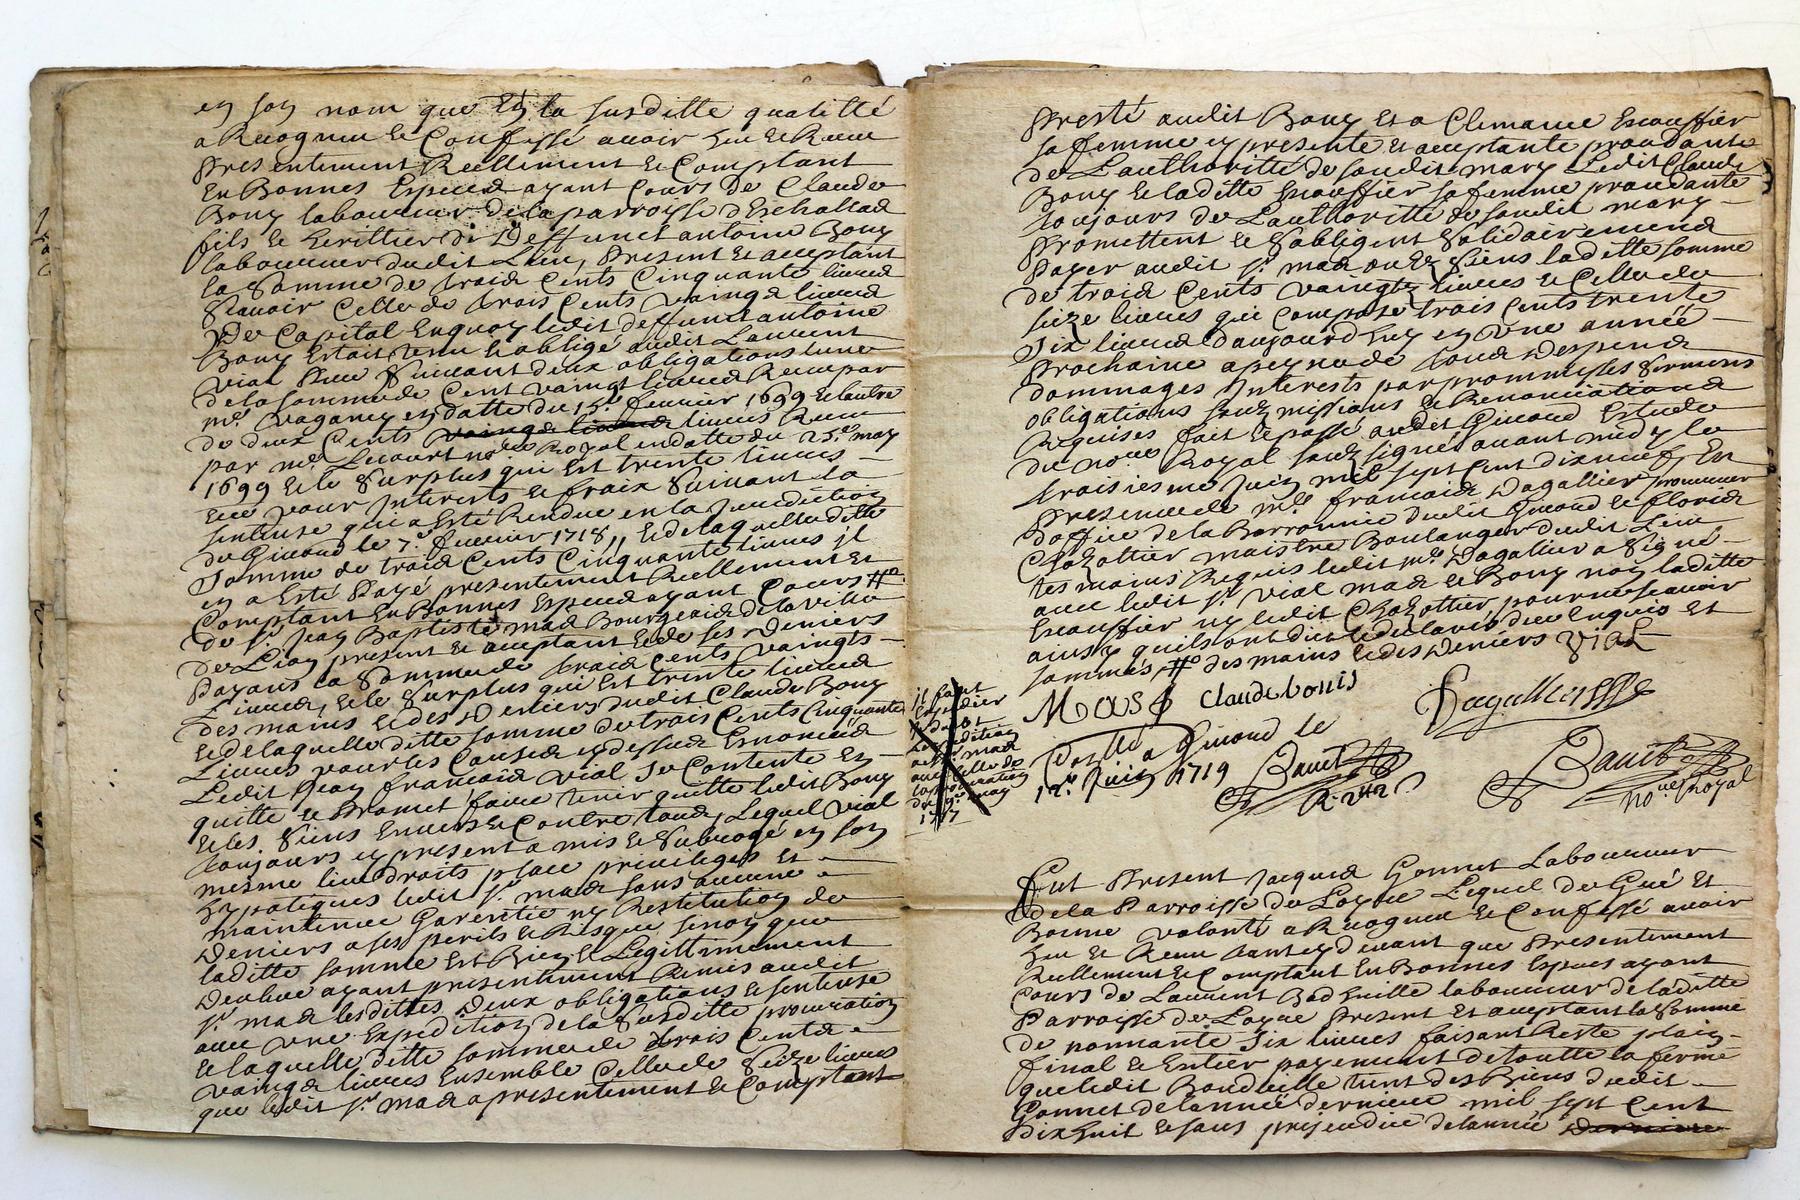 en son nom que En la susditte qualitté
a Recognu et Confessé avoir heu et Receu
presentement Reellement et Comptant
En Bonnes Especes ayant Cours de Claude
Bony laboureur de la parroisse d'Eschallas
fils et herittier de Deffunct antoine Bony
laboureur dudit Lieu, present et acceptant
la somme de trois Cents Cinquante livres
sçavoir Celle de trois Cents vaingt livres
De Capital Enquoy ledit deffunct antoine
Bony Estoit tenu et obligé audit Laurent
vial suivant deux obligations lune
de la somme de Cent vaingt livres Receu par
me. vaganey en datte du 15e. feuvrier 1699 et lautre
de deux Cents vaingt livres livres Receu
par me. Lecourt nore Royal en datte du 25e. may
1699 et le surplus qui est trente livres
pour Interests et fraix suivant la
sentense qui a Esté Rendue en la Juridiction
de Givord le 7e. feuvrier 1718,, Et de laquelle ditte
somme de trois Cents Cinquante livres jl
en a Esté Payé presentement Reellement et
Comptant En Bonnes Especes ayant Cours #
de sr. Jean Baptiste mas Bourgeois de la ville
de Lion present et acceptant et de ses Deniers
Payans la somme de trois Cents vaingts
Livres, et le surplus qui Est trente livres
des mains et des Deniers dudit Claude Bony
et de laquelle ditte somme de trois Cents Cinquante
Livres pour les Causes cy dessus Enoncées
Ledit Jean francois vial se Contente et
quitte et Promet faire tenir quitte ledit Bony
et les siens Envers et Contre tous, Lequel vial
toujours cy present a mis et subrogé en son
mesme lieu droits place privileges et
hypoteques ledit sr. mas sans aucune
maintenue Garentie ny Restitution de
Deniers a ses perils et Risque sinon que
laditte somme Est Bien et Legittimement
Deuhue ayant presentement Remis audit
sr. mas lesdittes Deux obligations et sentense
avec une Expedition de la susditte procuration
et laquelle ditte somme de trois Cents
vaingt livres Ensemble Celle de seize livres
que ledit sr. mas a presentement et Comptant
il faut
expedier
Expedition
mas
avec celle de
la procuration
du 9e. may
1717
Presté audit Bony et a Clemance Escoffier
sa femme cy presente et acceptante procedante
de L'authoritté de soudit mary Ledit Claude
Bony et laditte Escoffier sa femme procedante
toujours de L'authoritté de soudit mary
Promettent et s'obligent solidairement
Payer audit sr. mas ou Ez siens laditte somme
de trois Cents vaingts livres et Celle de
seize livres qui Compose trois Cents trente
Six livres daujourdhuy en Une année
Prochaine a peyne de tous Despens
dommages Interests par prommesses serments
obligations soubzmissions et Renonciations
Requises fait et passé audit Givord Estude
du nore Royal soubzsigné avant midy le
troisiesme Juin mil sept Cent dix neuf, En
presence de me. francois Dagallier procureur
d'office de la Barronnie dudit Givord et florid
Chazottier maistre Boulanger dudit Lieu
tesmoins Requis ledit me. Dagallier a signé
avec ledit sr. vial mas et Bony non laditte
Escoffier ny ledit Chazottier, pour ne sçavoir
ainsy quils ont dit de ce Enquis et
sommés # des mains et des Deniers VIAL
Mas Claude bonis Dagallier
Controllé a Givord le
12e. Juin 1719 Bauit
R. 242 s
Bauit
nore Royal
Fut Present Jacques Gonnet Laboureur
de la Parroisse de Loyre Lequel de Gré et
Bonne volonté a Recogneu et Confessé avoir
heu et Receu tant cy devant que Presentement
Reellement et Comptant En Bonnes Especes ayant
Cours de Laurent laboureur de laditte
Parroisse de Loyre Present et acceptant la somme
de nonnante six livres faisant Reste plain
final et Entier payement de toutte la ferme
que ledit tient des Biens dudit
Gonnet de l'année derniere mil sept Cent
dix huit et sans prejeudice de l'année derniere